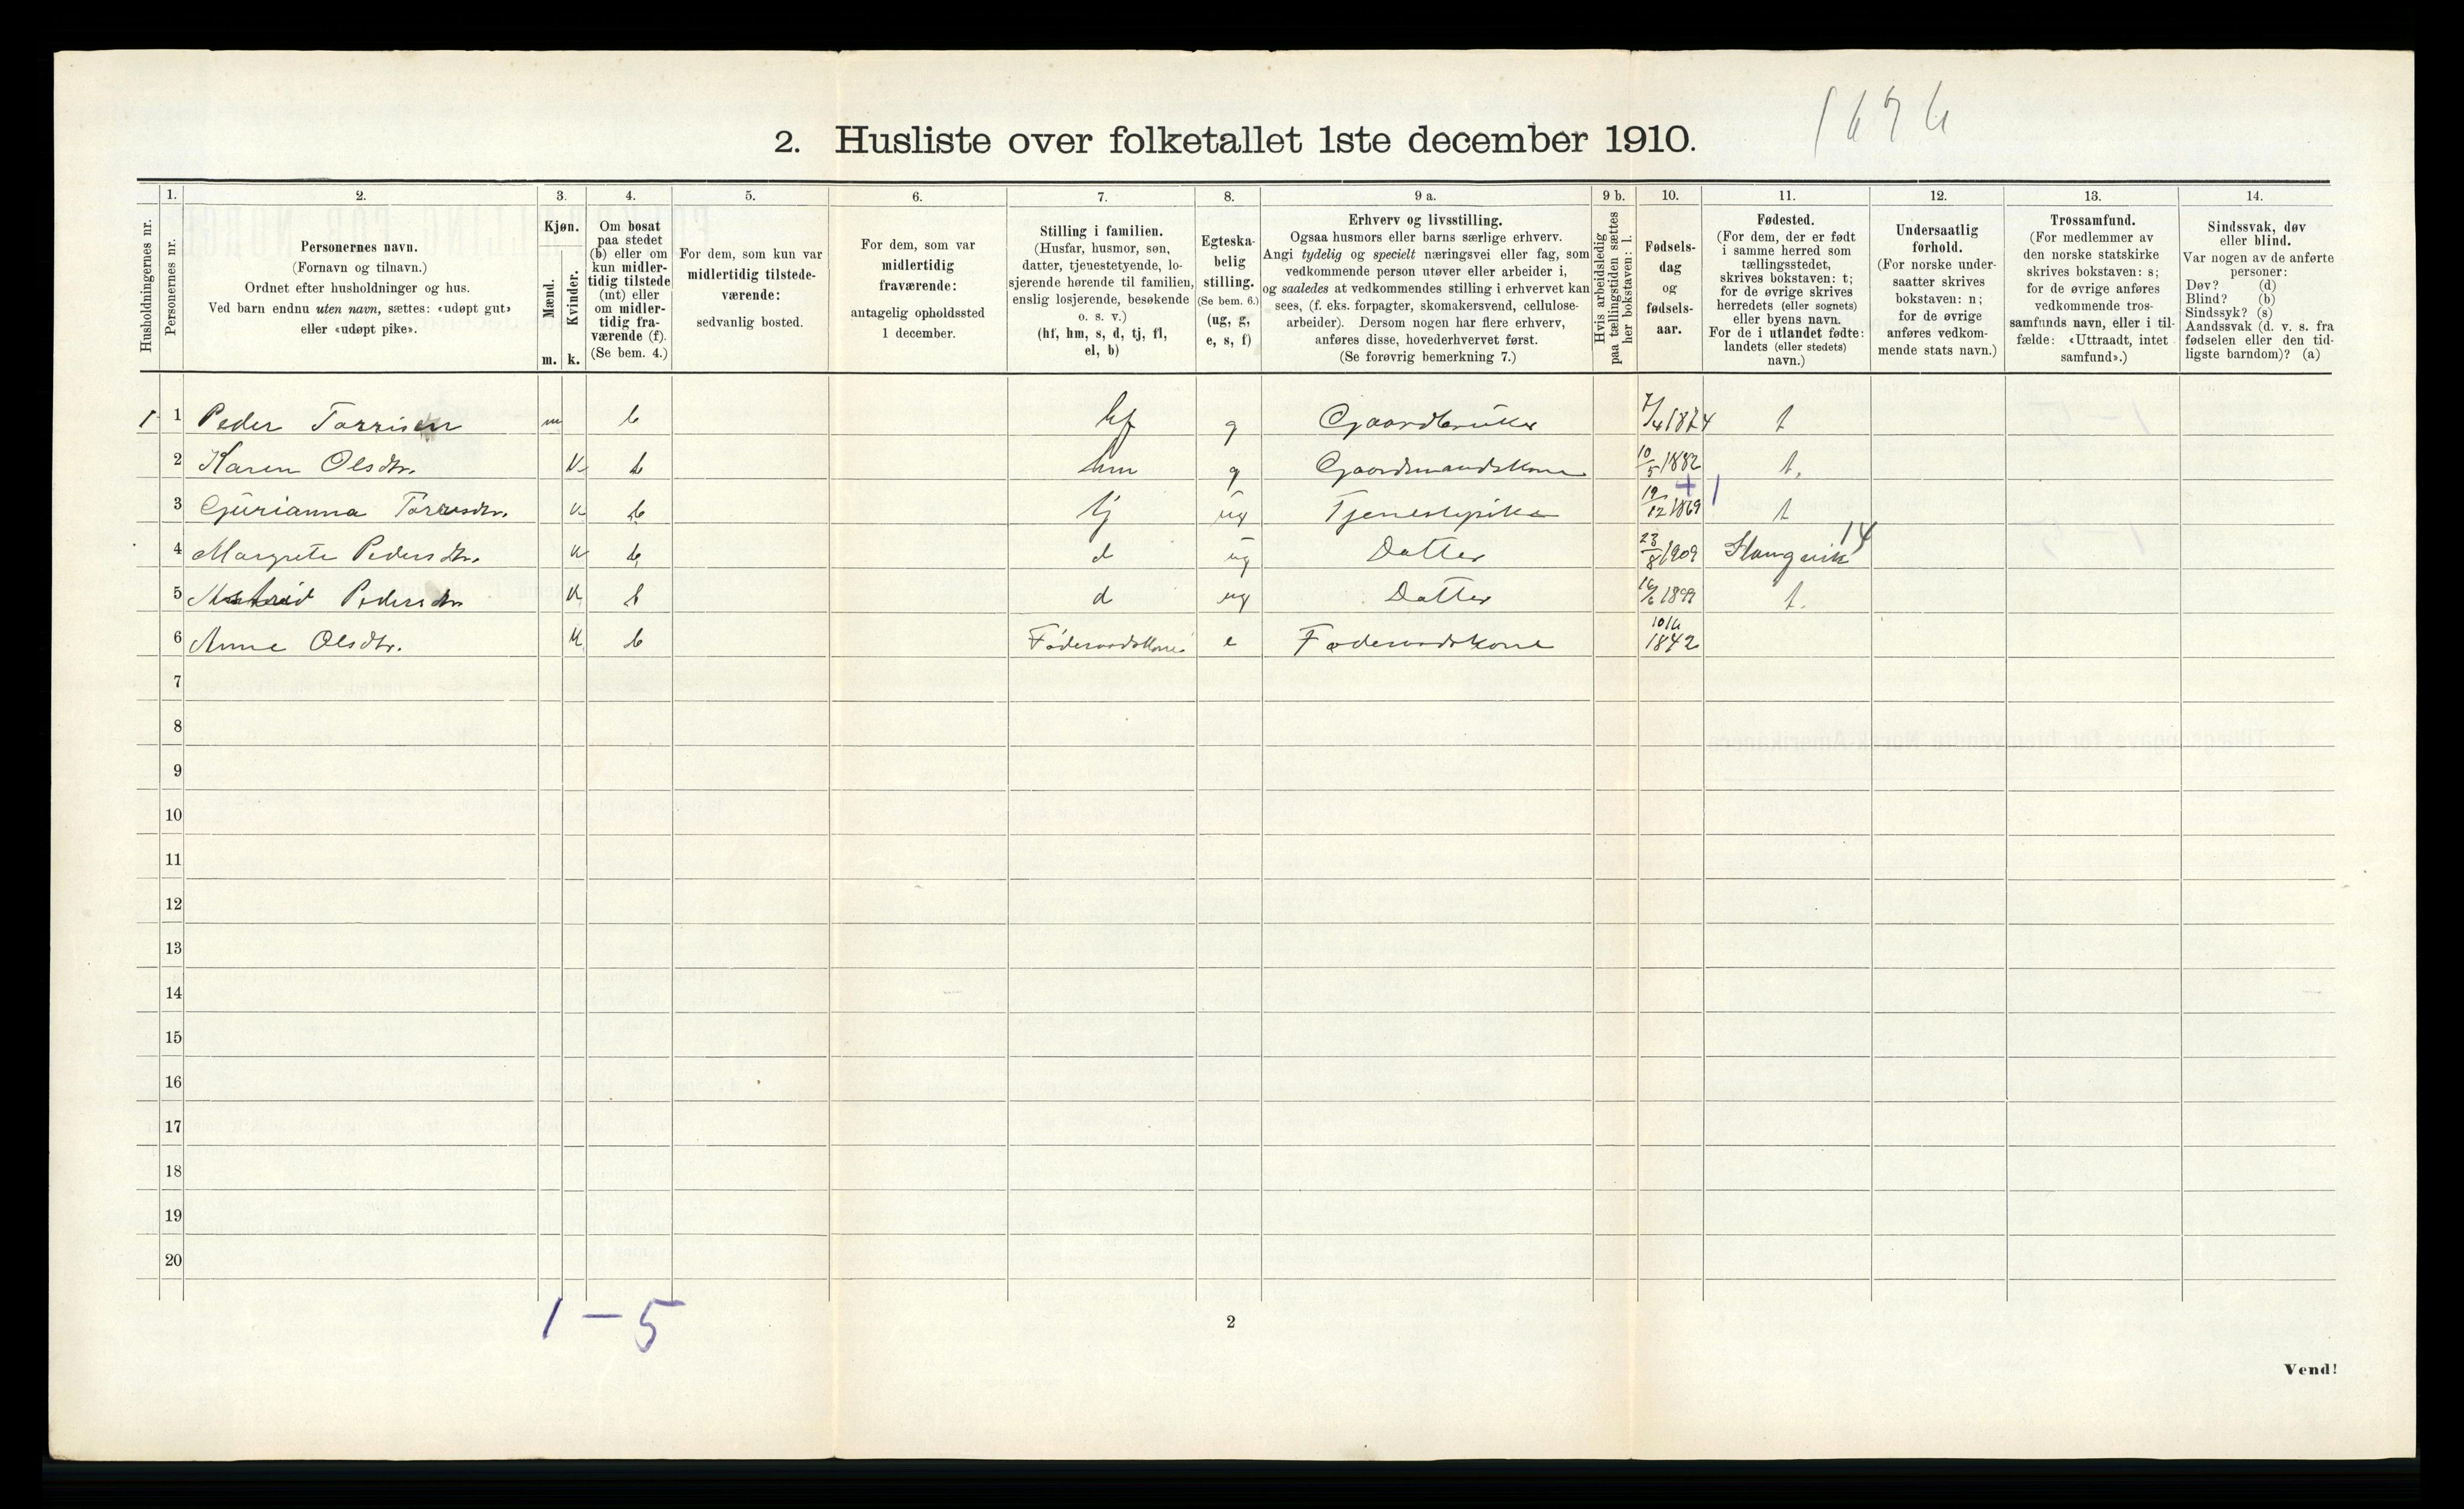 1676
2. Husliste over folketallet 1ste december 1910.
Husholdningernes nr.
1. Personernes nr.
2. Personernes navn.
(Fornavn og tilnavn.)
Ordnet efter husholdninger og hus.
Ved barn endnu uten navn, sættes: «udøpt gut»
eller «udøpt pike».
3. Kjøn.
Mænd. m.
Kvinder. k.
4. Om bosat
paa stedet
(b) eller om
kun midler-
tidig tilstede
(mt) eller
om midler-
tidig fra-
værende (f).
(Se bem. 4.)
5. For dem, som kun var
midlertidig tilstede-
værende:
sedvanlig bosted.
6. For dem, som var
midlertidig
fraværende:
antagelig opholdssted
1 december.
7. Stilling i familien.
(Husfar, husmor, søn,
datter, tjenestetyende, lo-
sjerende hørende til familien,
enslig losjerende, besøkende
o. s. v.)
(hf, hm, s, d, tj, fl,
el, b)
8. Egteska-
belig
stilling.
(Se bem. 6.)
(ug, g,
e, s, f)
9 a. Erhverv og livsstilling.
Ogsaa husmors eller barns særlige erhverv.
Angi tydelig og specielt næringsvei eller fag, som
vedkommende person utøver eller arbeider i,
og saaledes at vedkommendes stilling i erhvervet kan
sees, (f. eks. forpagter, skomakersvend, cellulose-
arbeider). Dersom nogen har flere erhverv,
anføres disse, hovederhvervet først.
(Se forøvrig bemerkning 7.)
9 b. Hvis arbeidsledig
paa tællingstiden sættes
her bokstaven: l.
10. Fødsels-
dag
og
fødsels-
aar.
11. Fødested.
(For dem, der er født
i samme herred som
tællingsstedet,
skrives bokstaven: t;
for de øvrige skrives
herredets (eller sognets)
eller byens navn.
For de i utlandet fødte:
landets (eller stedets)
navn.)
12. Undersaatlig
forhold.
(For norske under-
saatter skrives
bokstaven: n;
for de øvrige
anføres vedkom-
mende stats navn.)
13. Trossamfund.
(For medlemmer av
den norske statskirke
skrives bokstaven: s;
for de øvrige anføres
vedkommende tros-
samfunds navn, eller i til-
fælde: «Uttraadt, intet
samfund».)
14. Sindssvak, døv
eller blind.
Var nogen av de anførte
personer:
Døv? (d)
Blind? (b)
Sindssyk? (s)
Aandssvak (d. v. s. fra
fødselen eller den tid-
ligste barndom)? (a)
1 1 Peder Torrisen m b hf g Gaardbruker 7/4 1874 t
2 Karen Olsdtr. k b hm g Gaardmandskone 10/5 1882 t.
3 Gurianna Torrisdtr. k b tj ug Tjenestepike 19/12 1869 t
4 Margrete Pedersdtr. k b d ug Datter 23/8 1909 Stangvik 14
5 Pedersdtr k b d ug Datter 16/6 1899 t.
6 Anne Olsdtr. k b Føderaadskone e Føderaadskone 1842
7
8
9
10
11
12
13
14
15
16
17
18
19
20
1 - 5
2
Vend!